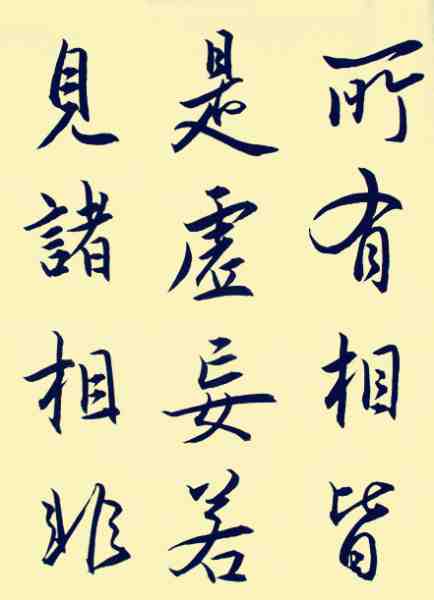 所有相皆
是虛妄若
見諸相非